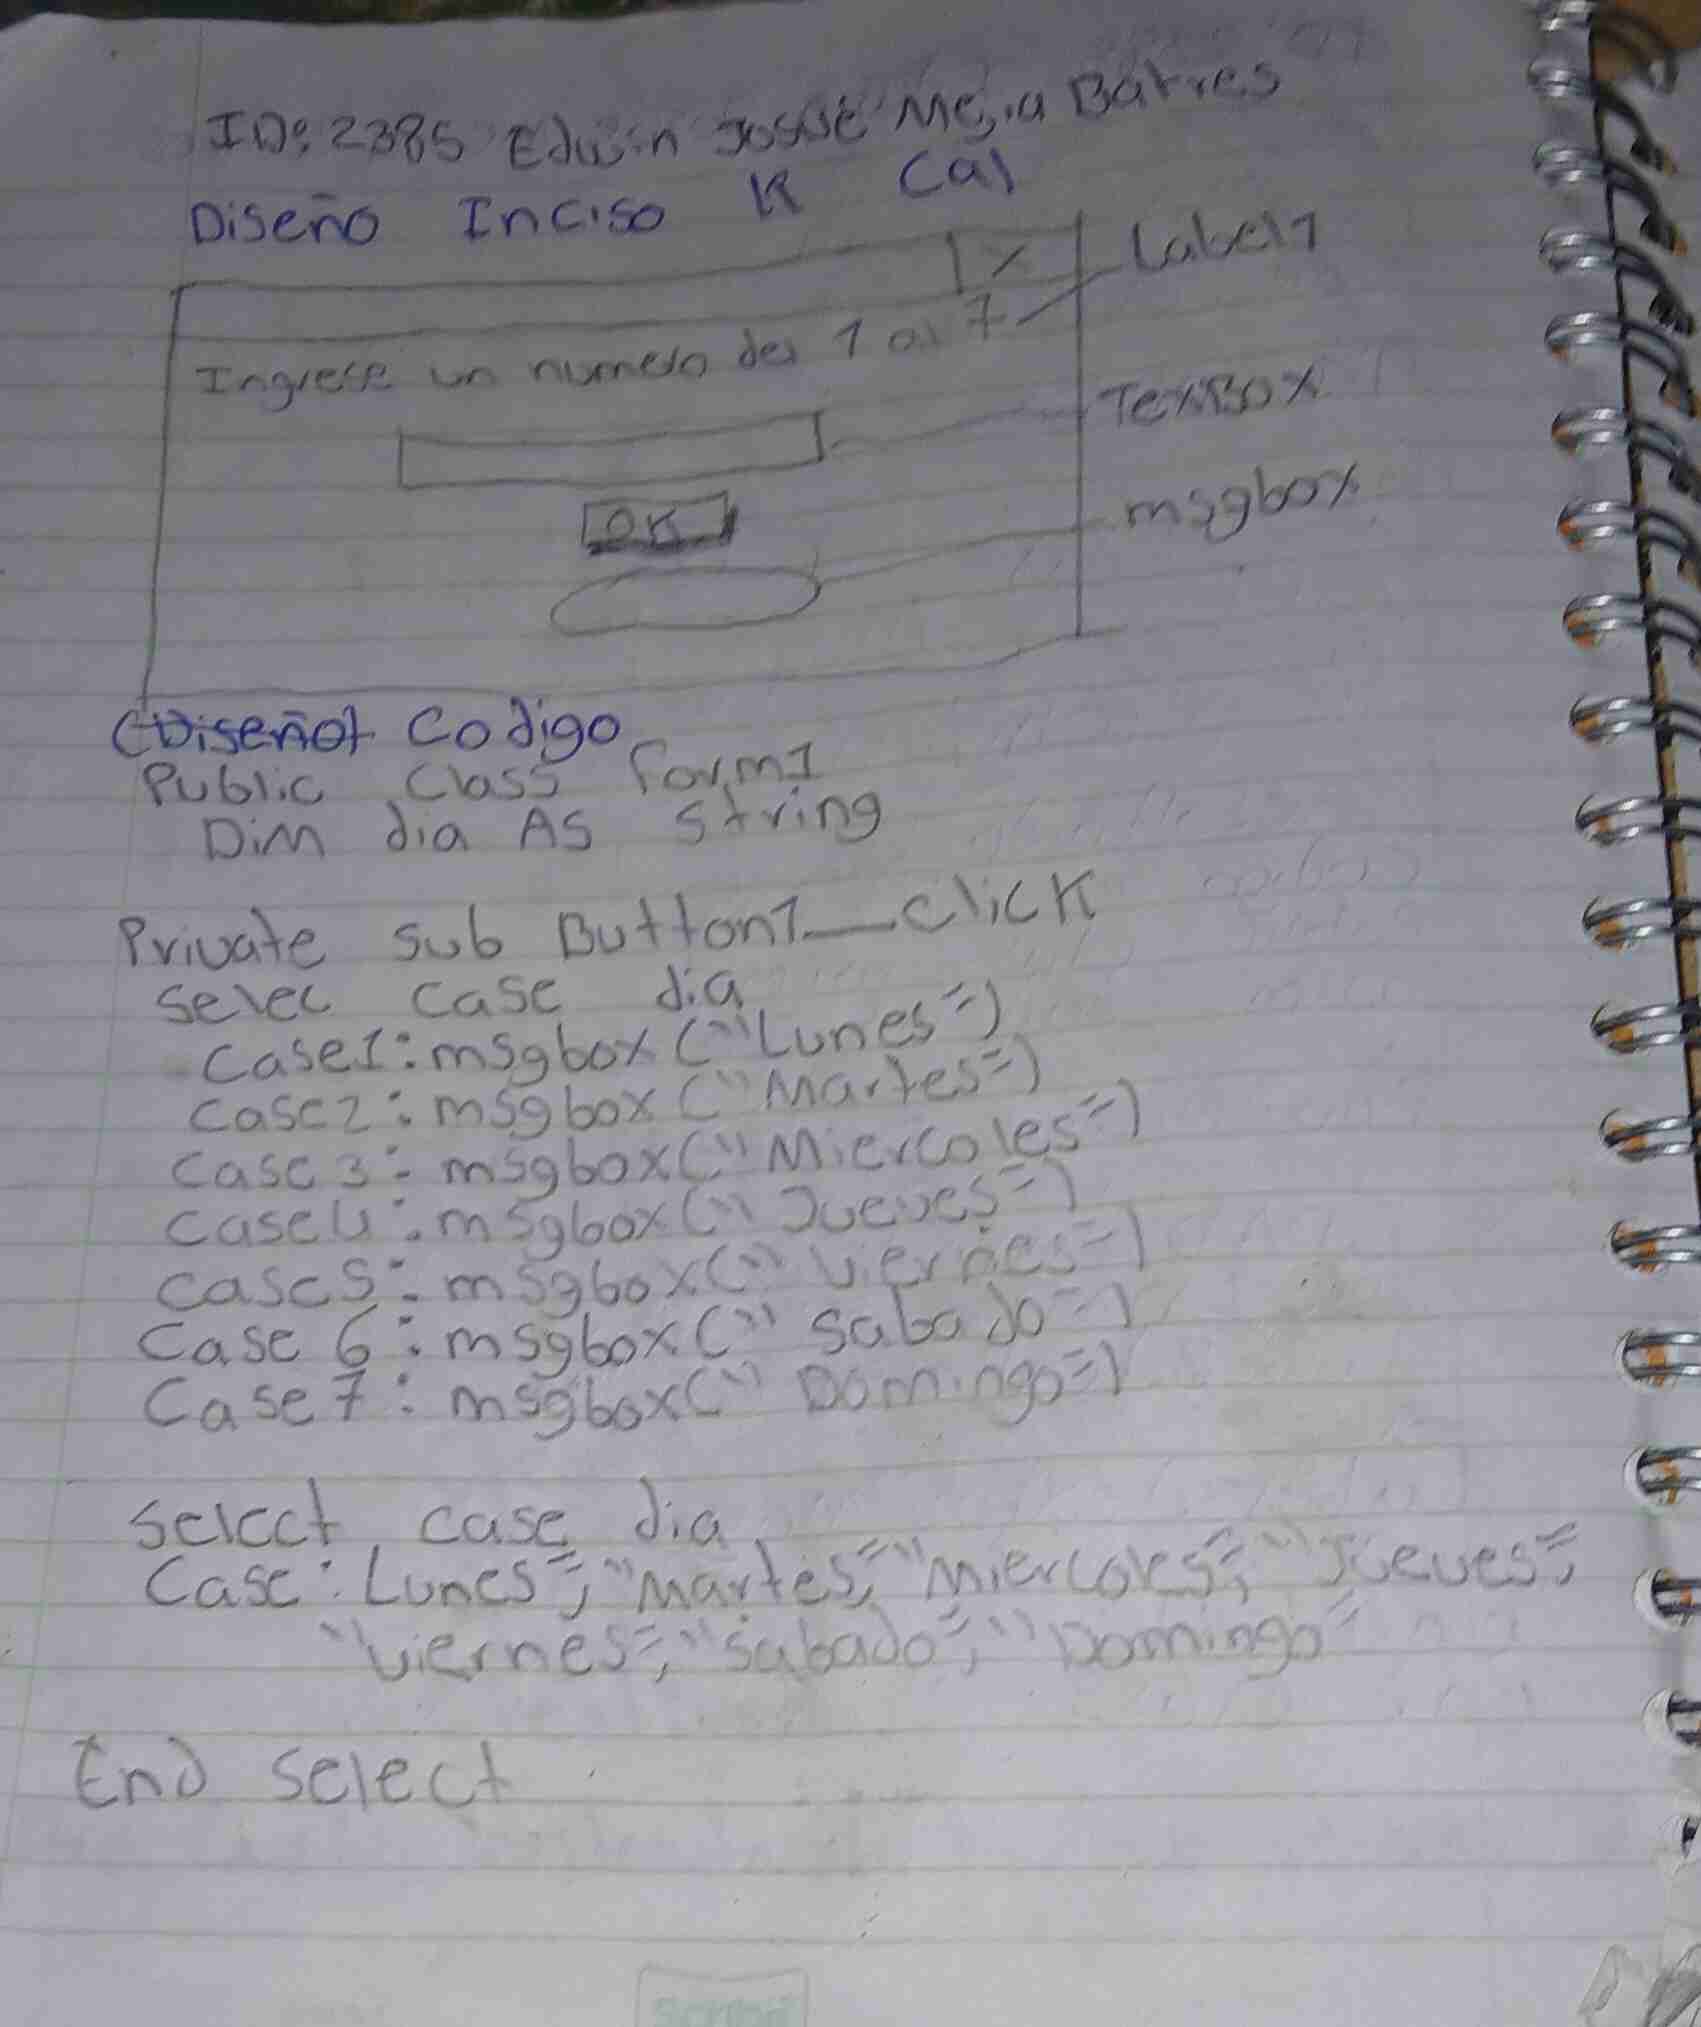 ID: 2385 Edwin Josué Mejia Batres
Diseño Inciso K Cal
X
Label1
Ingrese un numero del 1 al 7
TexBox
OK
msgbox
(Diseño) Codigo
Public Class Form1
Dim dia AS String
Private Sub Button1_Click
Selec case dia
Case1: msgbox ("Lunes")
Case2: msgbox ("Martes")
Case 3: msgbox ("Miercoles")
Case4: msgbox (" Jueves")
Case5: msgbox (" Viernes")
Case 6: msgbox (" Sabado")
Case 7: msgbox (" Domingo")
Select case dia
Case: Lunes", "Martes", "Miercoles", "Jueves",
"Viernes", "Sabado", "Domingo"
End Select
Scribe